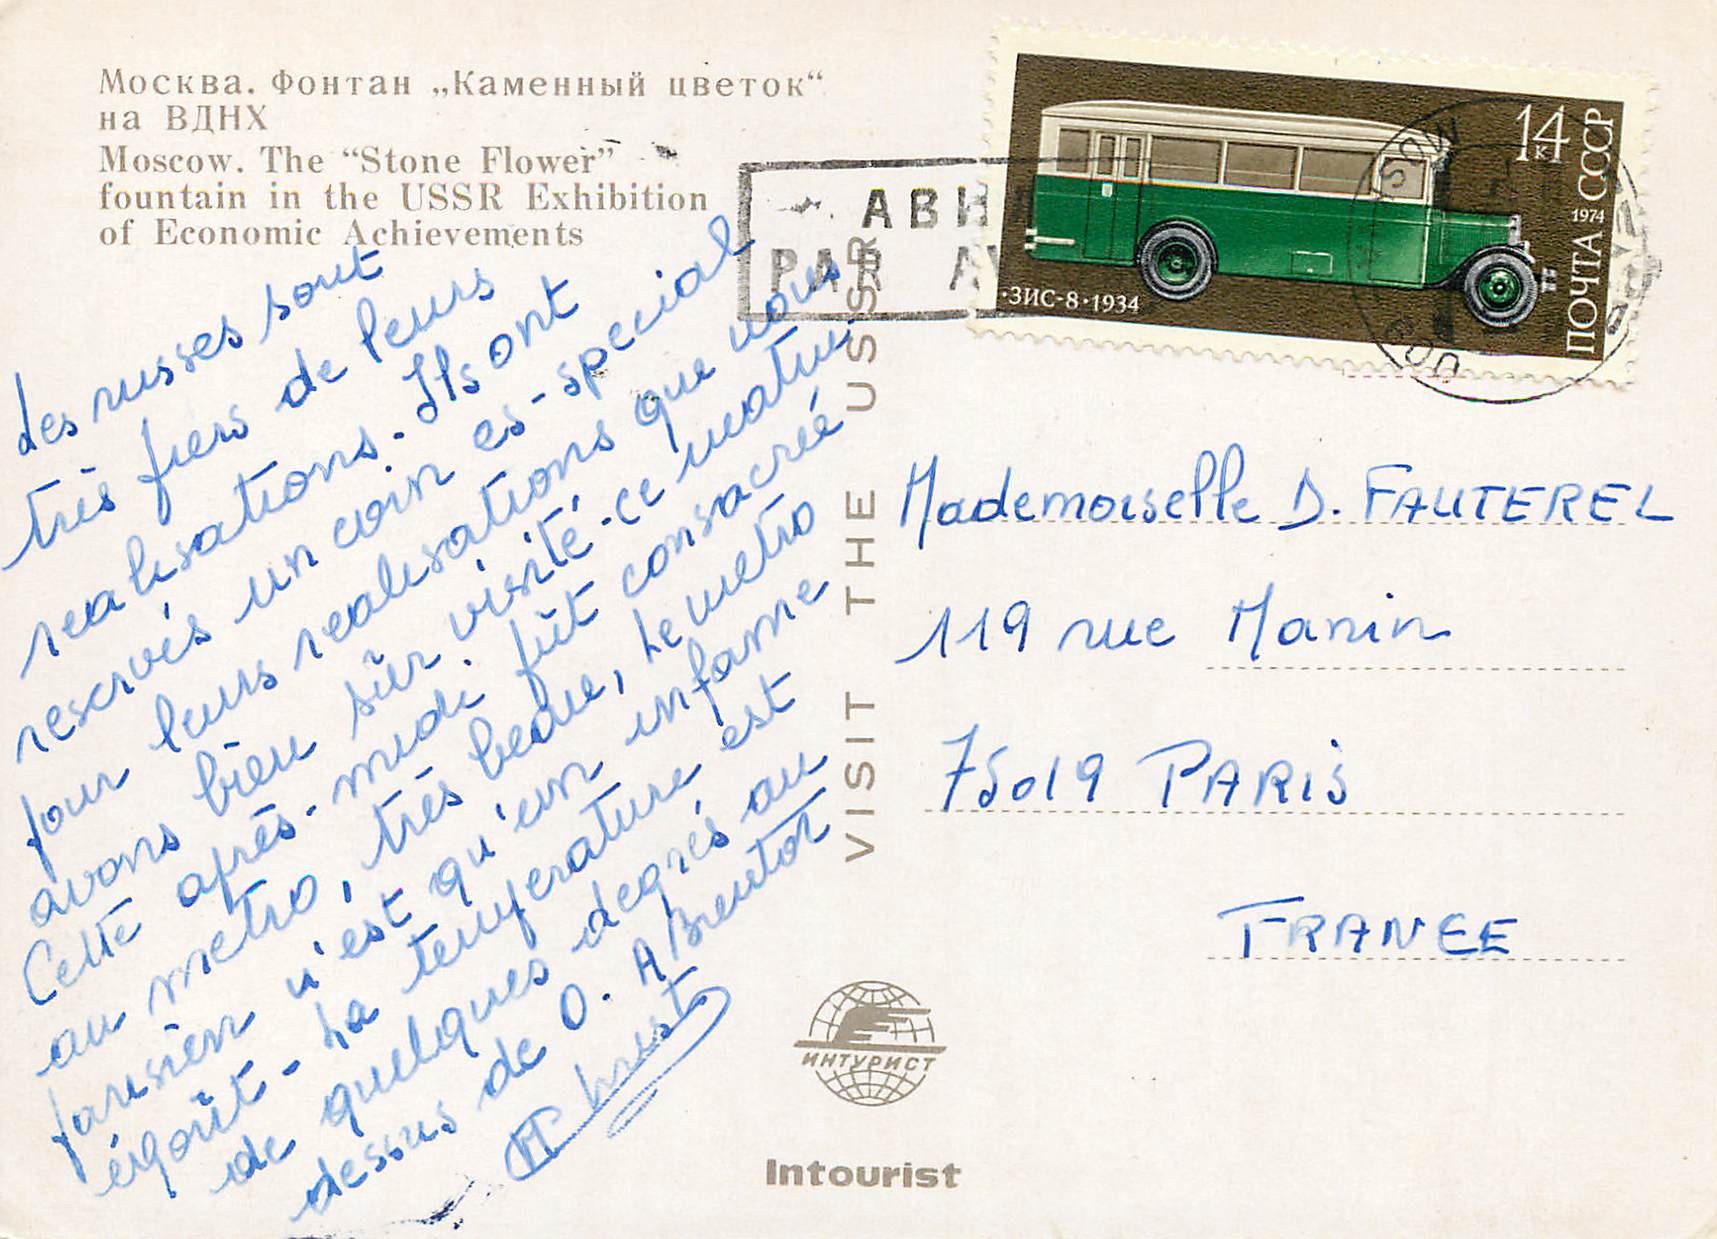 Москва. Фонтан „Каменный цветок“
на ВДНХ
Moscow. The “Stone Flower”
fountain in the USSR Exhibition
of Economic Achievements
АВИ
PAR AV
14 к
1974
ПОЧТА СССР
·ЗИС-8·1934
Les russes sont
très fiers de leurs
realisations. Ils ont
reservés un coin es-special
pour leurs realisations que nous
avons bien sûr visité. ce matin.
Cette après-midi fût consacrée
au metro, très beau, Le metro
parisien n'est qu'un infame
égoût - La temperature est
de quelques degrés au
dessus de 0. A Bientot
VISIT THE USSR
Mademoiselle D. FAUTEREL
119 rue Manin
75019 PARIS
FRANCE
ИНТУРИСТ
Intourist